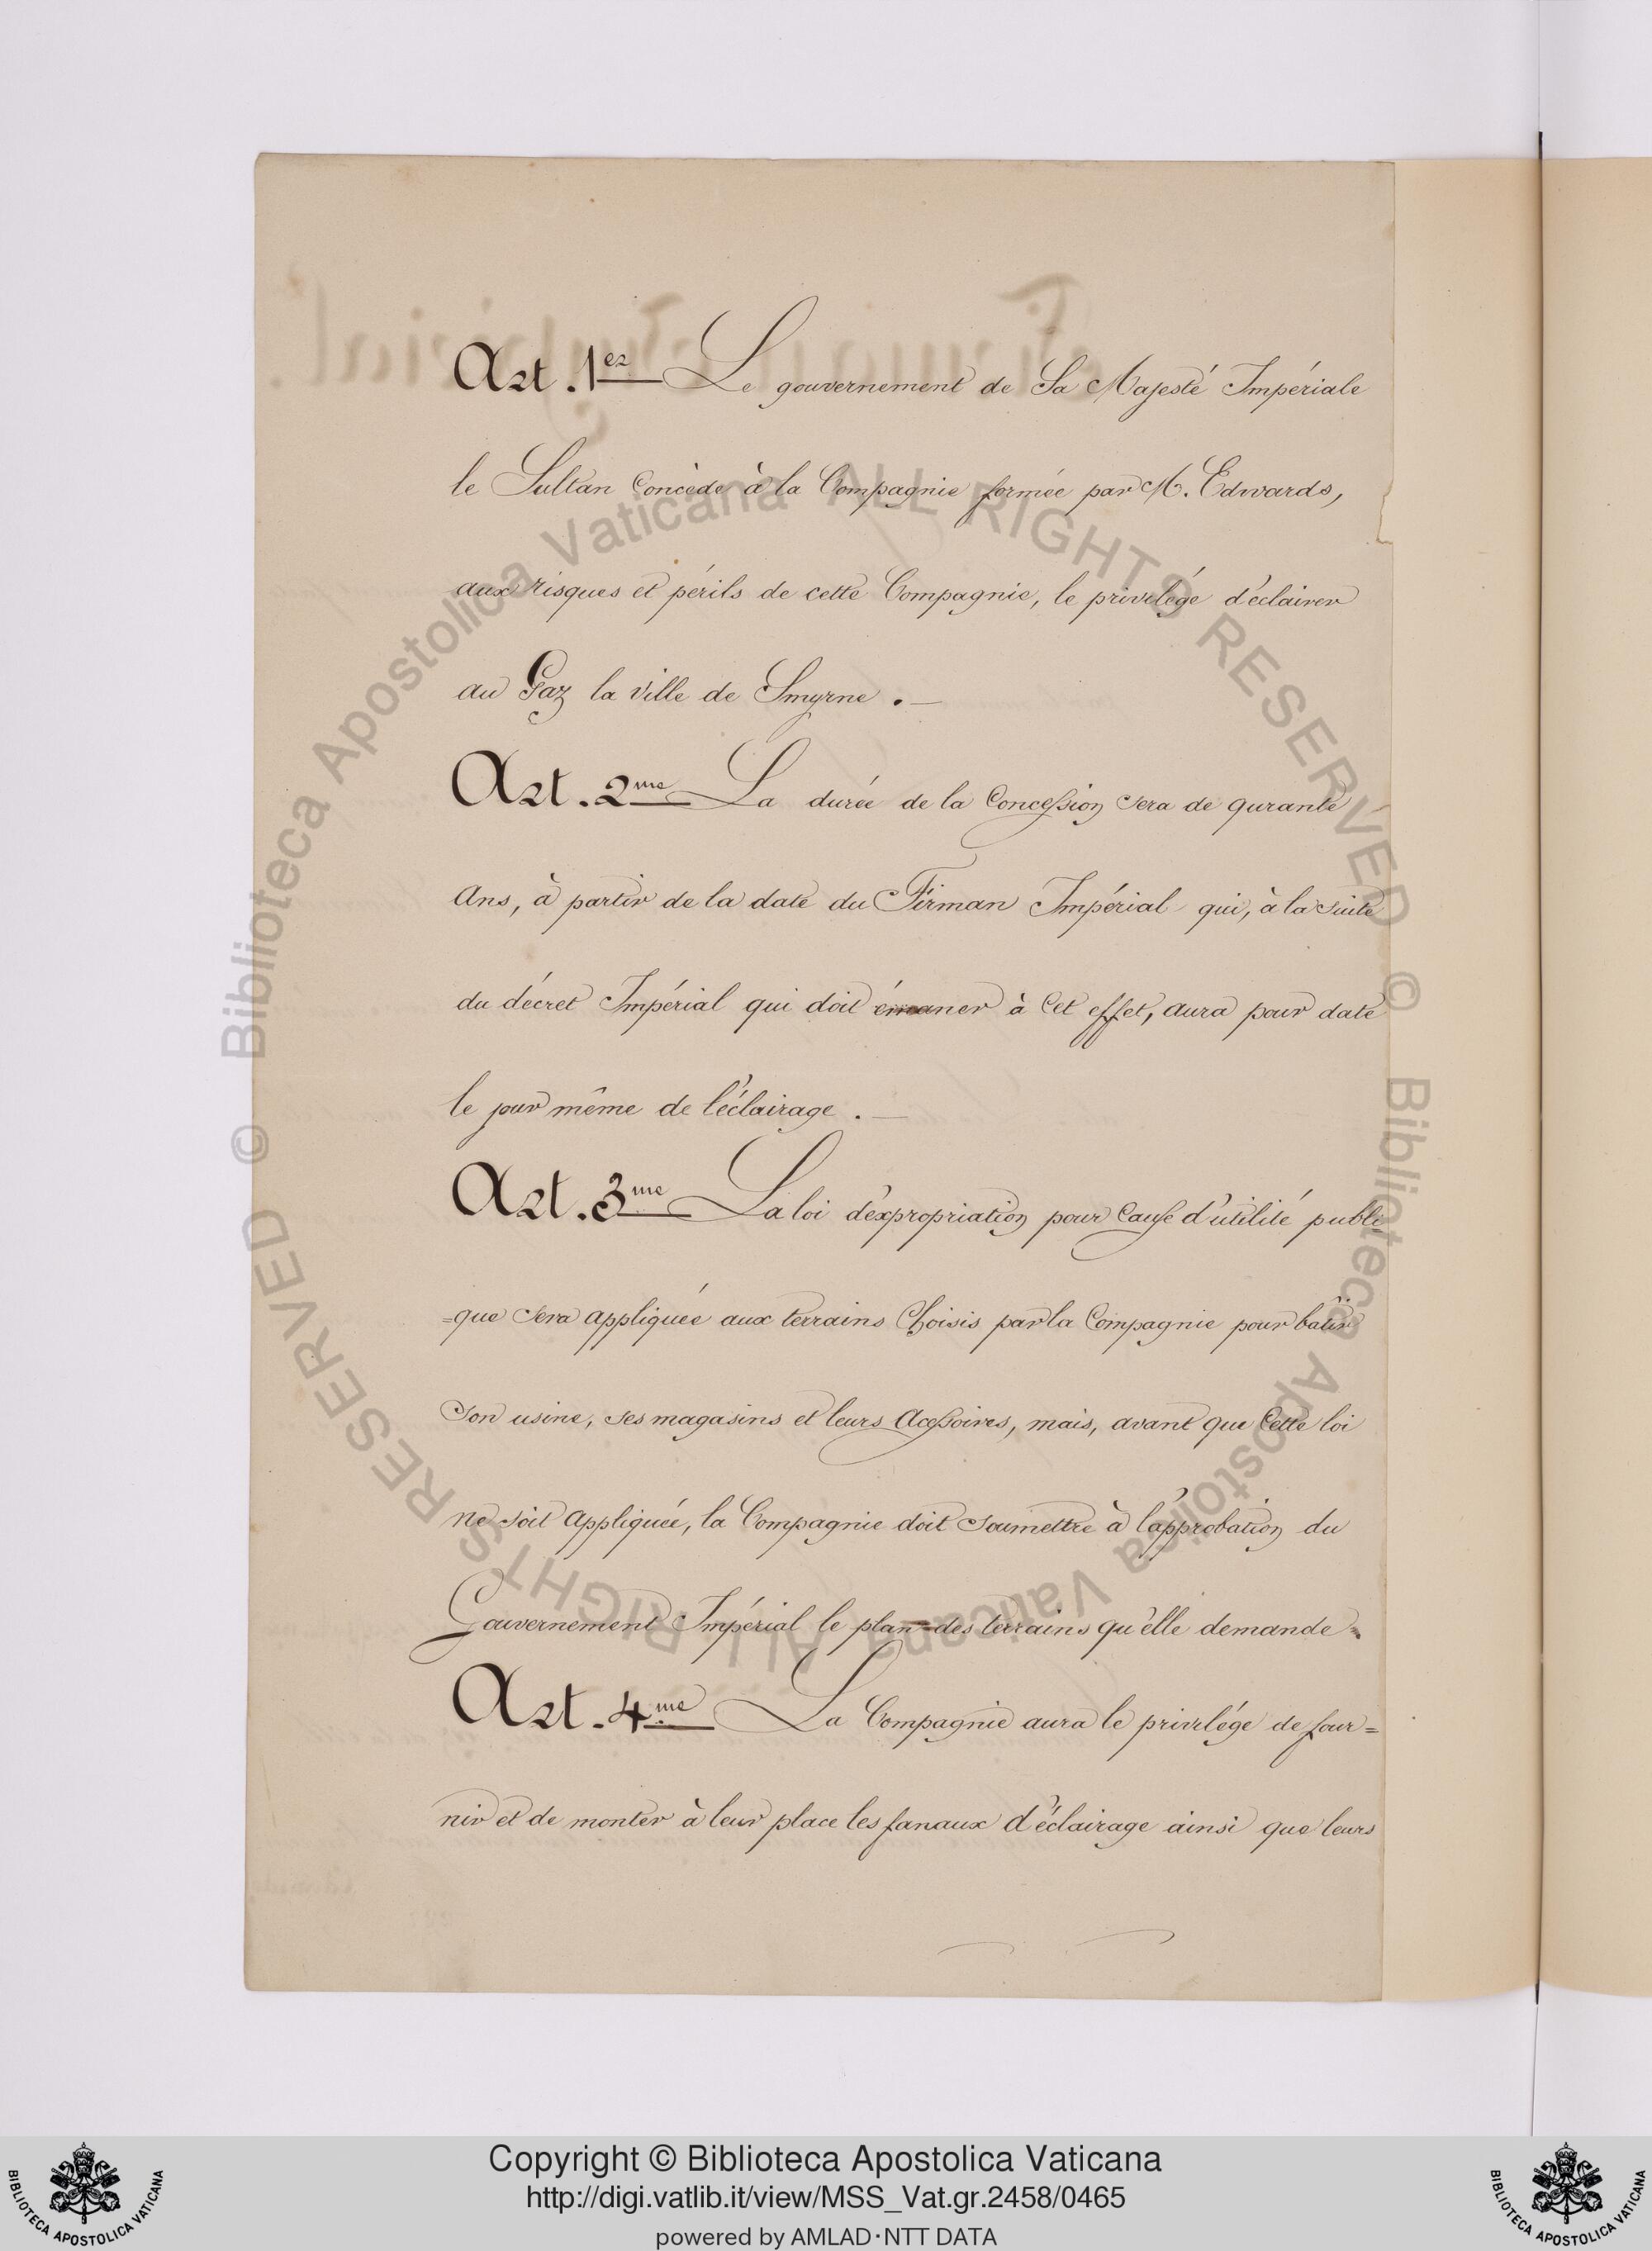 Art. 1er Le gouvernement de Sa Majesté Impériale
le Sultan Concède à la Compagnie formée par M. Edwards,
aux risques et périls de cette Compagnie, le privilége d'éclairer
au Gaz la Ville de Smyrne . —
Art. 2me La durée de la Concession sera de qurante
Ans, à partir de la date du Firman Impérial qui, à la suite
du décret Impérial qui doit émaner à Cet effet, aura pour date
le jour même de l'éclairage . —
Art. 3me La loi d'expropriation pour Cause d'utilité publi-
=que sera appliquée aux terrains Choisis par la Compagnie pour bâtir
son usine, ses magasins et leurs Acessoires, mais, avant que Cette loi
ne soit Appliquée, la Compagnie doit soumettre à l'approbation du
Gouvernement Impérial le plan des terrains qu'elle demande.
Art. 4me La Compagnie aura le privilége de four=
nir et de monter à leur place les fanaux d'éclairage ainsi que leurs
© Biblioteca Apostolica Vaticana ALL RIGHTS RESERVED © Biblioteca Apostolica Vaticana ALL RIGHTS RESERVED
Copyright © Biblioteca Apostolica Vaticana
http://digi.vatlib.it/view/MSS_Vat.gr.2458/0465
powered by AMLAD·NTT DATA
BIBLIOTECA APOSTOLICA VATICANA
BIBLIOTECA APOSTOLICA VATICANA